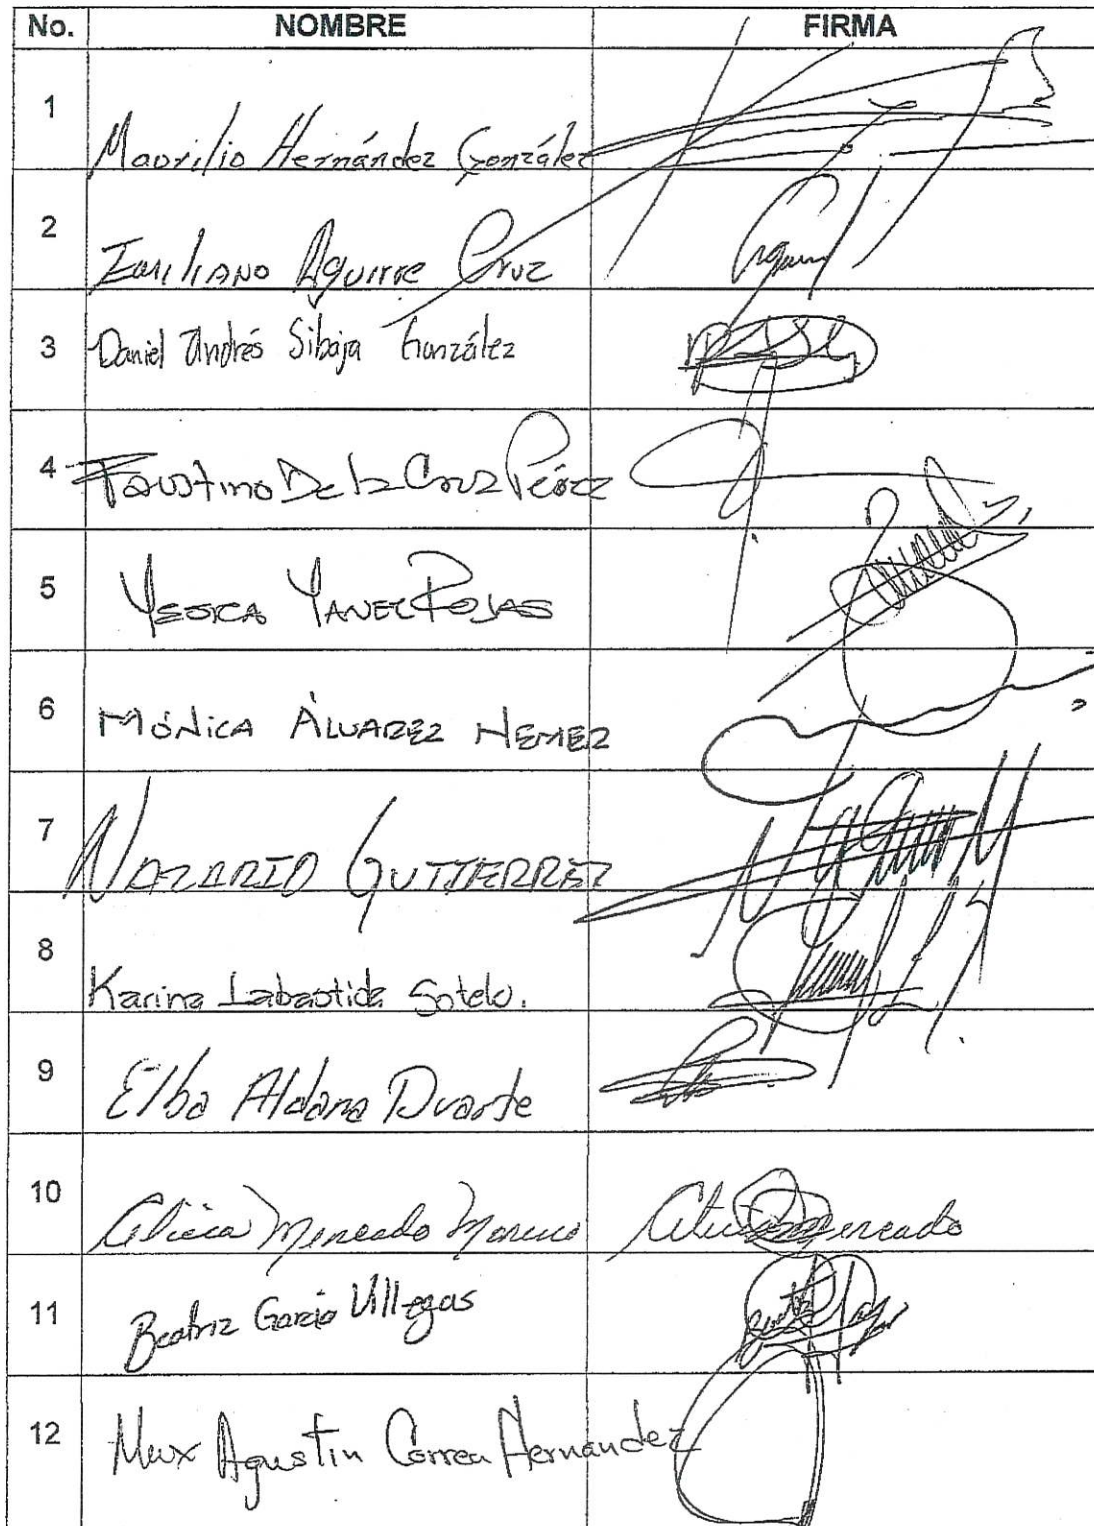 No. NOMBRE FIRMA
1 Maurilio Hernández González
2 Emiliano Aguirre Cruz
3 Daniel Andrés Sibaja González
4 Faustino De la Cruz Pérez
5 Yesica Yanet Rojas
6 Mónica Álvarez Nemer
7 Nazario Gutierrez
8 Karina Labastida Sotelo.
9 Elba Aldana Duarte
10 Alicia Mercado Moreno Alicia Mercado
11 Beatriz García Villegas
12 Max Agustin Correa Hernandez